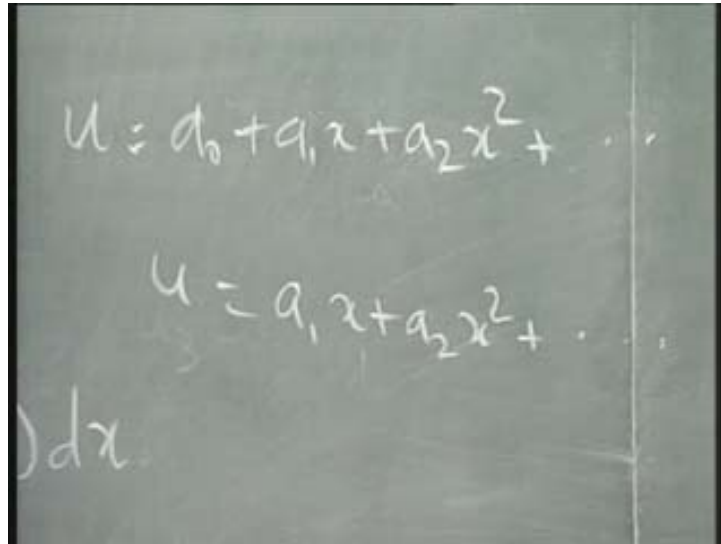 u = a₀ + a₁x + a₂x² + ...
u = a₁x + a₂x² + ...
)dx